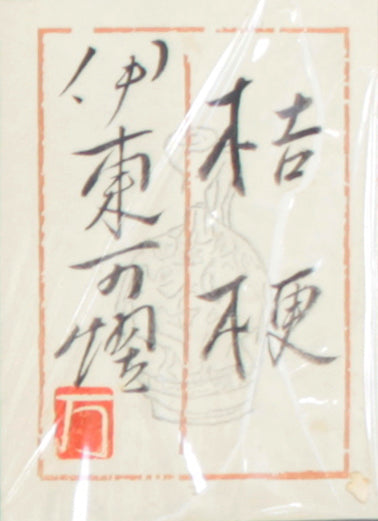 桔梗
伊東万燿
万